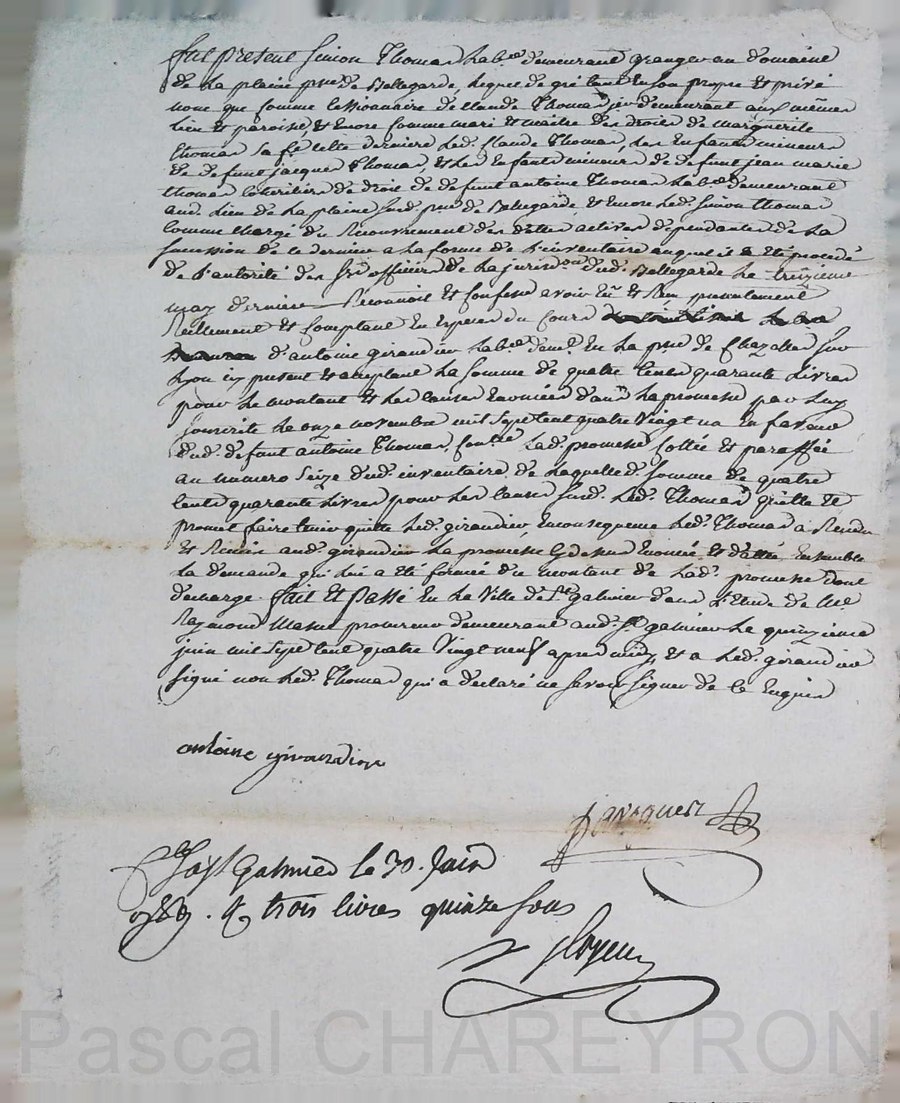 fut présent Simon Thomas hab.t demeurant granger au domaine
de la plaine p.sse de Bellegarde, lequel de gré tant en son propre et privé
nom que comme cessionnaire de Claude Thomas demeurant aux mêmes
lieu et paroisse, et encore comme mari et maitre des droits de Marguerite
Thomas sa f.e cette derniere led. Claude Thomas, les enfants mineurs
de defunt jacques Thomas, et les enfants mineurs de defunt jean marie
Thomas cohéritiers de droit de defunt antoine Thomas hab.t demeurant
aud. lieu de la plaine sus.d p.sse de Bellegarde, et encore led. Simon Thomas
comme chargé du recouvrement des dettes actives dépendantes de la
succession de ce dernier a la forme de l'inventaire auquel il a été procédé
de l'autorité des officiers de la jurisd.on dud. Bellegarde le treizieme
may dernier Reconnoit et confesse avoir eu et Reçu presentement
Reellement et comptant en especes du cours
d'antoine girardier hab.t dem.t en la p.sse de Chazelles sur
Lyon icy present et acceptant la somme de quatre cents quarante Livres
pour le montant et les causes enoncées dans la promesse par luy
souscrite le onze novembre mil sept cent quatre vingt un en faveur
dud. defunt antoine Thomas, lad. promesse cottée et paraffée
au numero seize dud. inventaire de laquelle d. somme de quatre
cents quarante livres pour les causes susd. led. Thomas quitte et
promet faire tenir quitte led. girardier, en consequence led. Thomas a Rendu
et Remis aud. girardier la promesse cy dessus enoncée et dattée ensemble
la demande qui lui a été formée du montant de lad. promesse dont
decharge. fait et passé en la Ville de S.t galmier dans l'Etude de M.e
Raymond procureur demeurant aud. S.t galmier le quinzieme
juin mil sept cent quatre Vingt neuf apres midy, et a led. girardier
signé non led. Thomas qui a declaré ne savoir signer de ce enquis
antoine girardier
a S.t Galmier le 30 Juin
1789. R trois livres quinze sous
Pascal CHAREYRON